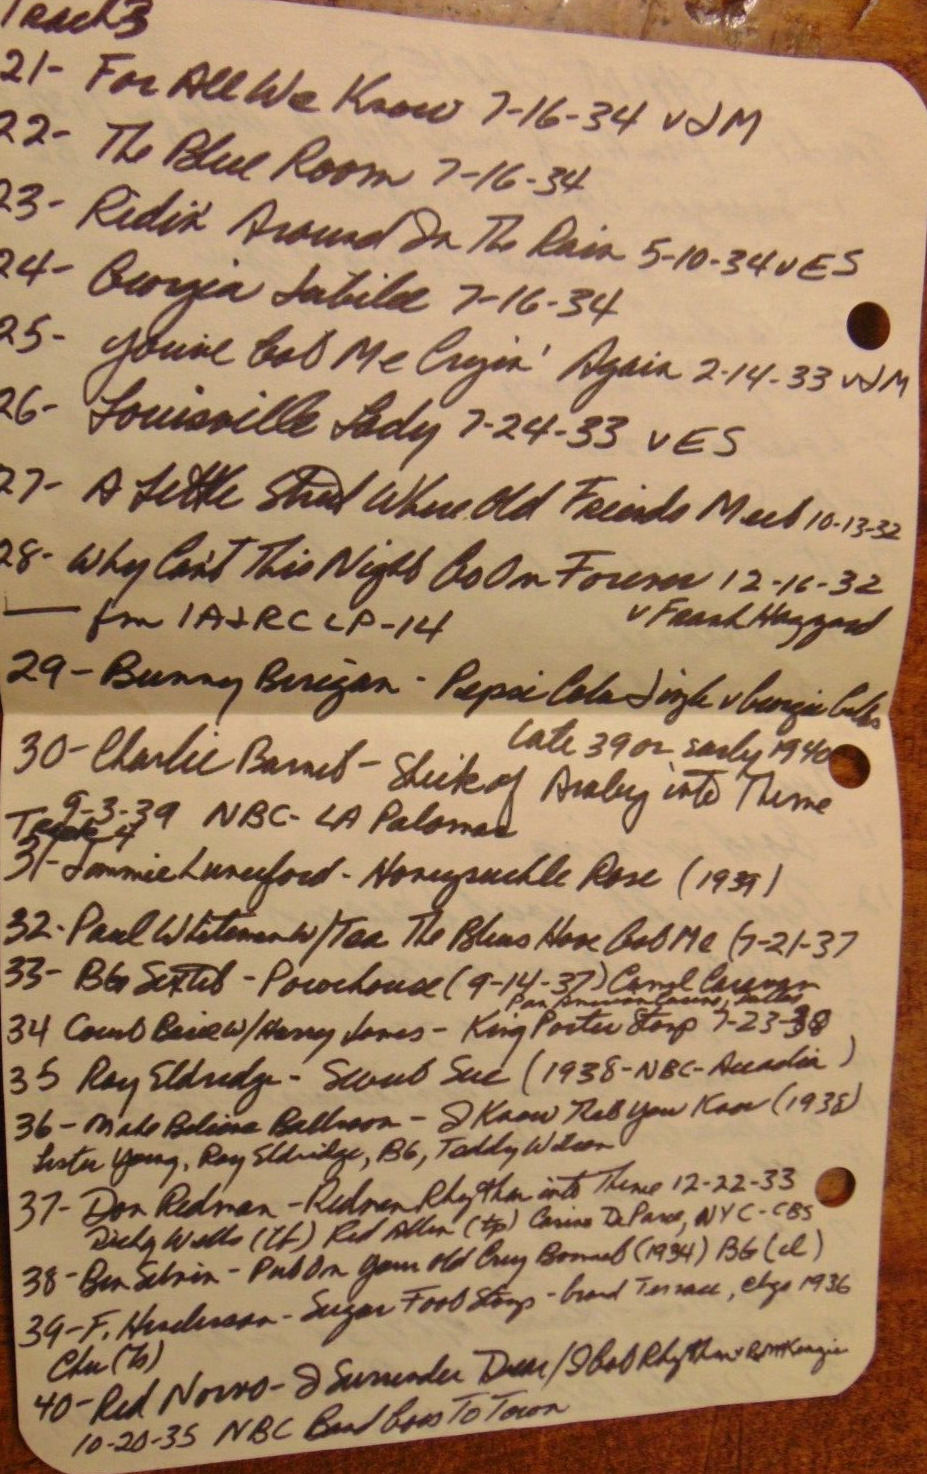 Track 3
21- For All We Know 7-16-34 vJM
22- The Blue Room 7-16-34
23- Ridin' Around In The Rain 5-10-34 vES
24- Georgia Jubilee 7-16-34
25- You've Got Me Cryin' Again 2-14-33 vJM
26- Louisville Lady 7-24-33 vES
27- A Little Street Where Old Friends Meet 10-13-32
28- Why Can't This Night Go On Forever 12-16-32
— fm IAJRC LP-14 v Frank Hazzard
29- Bunny Berigan - Pepsi Cola Jingle v Georgia Gibbs
late 39 or early 1940
30- Charlie Barnet - Sheik of Araby into Theme
9-3-39 NBC- LA Palomar
Track 4
31- Jimmie Lunceford - Honeysuckle Rose (1939)
32- Paul Whiteman w/Tea The Blues Have Got Me (7-21-37
33- BG Sextet - Powerhouse (9-14-37) Camel Caravan
Pan American Casino, Dallas
34 Count Basie w/Harry James - King Porter Stomp 7-23-38
35 Roy Eldridge - Sweet Sue (1938-NBC-Arcadia)
36- Make Believe Ballroom - I Know That You Know (1938)
Lester Young, Roy Eldridge, BG, Teddy Wilson
37- Don Redman - Redman Rhythm into Theme 12-22-33
Dicky Wells (tb) Red Allen (tp) Casino De Paree, NYC-CBS
38- Ben Selvin - Put On Your Old Grey Bonnet (1934) BG (cl)
39- F. Henderson - Sugar Foot Stomp - Grand Terrace, Chgo 1936
Chu (ts)
40- Red Norvo - I Surrender Dear/I Got Rhythm v R McKenzie
10-20-35 NBC Band Goes To Town